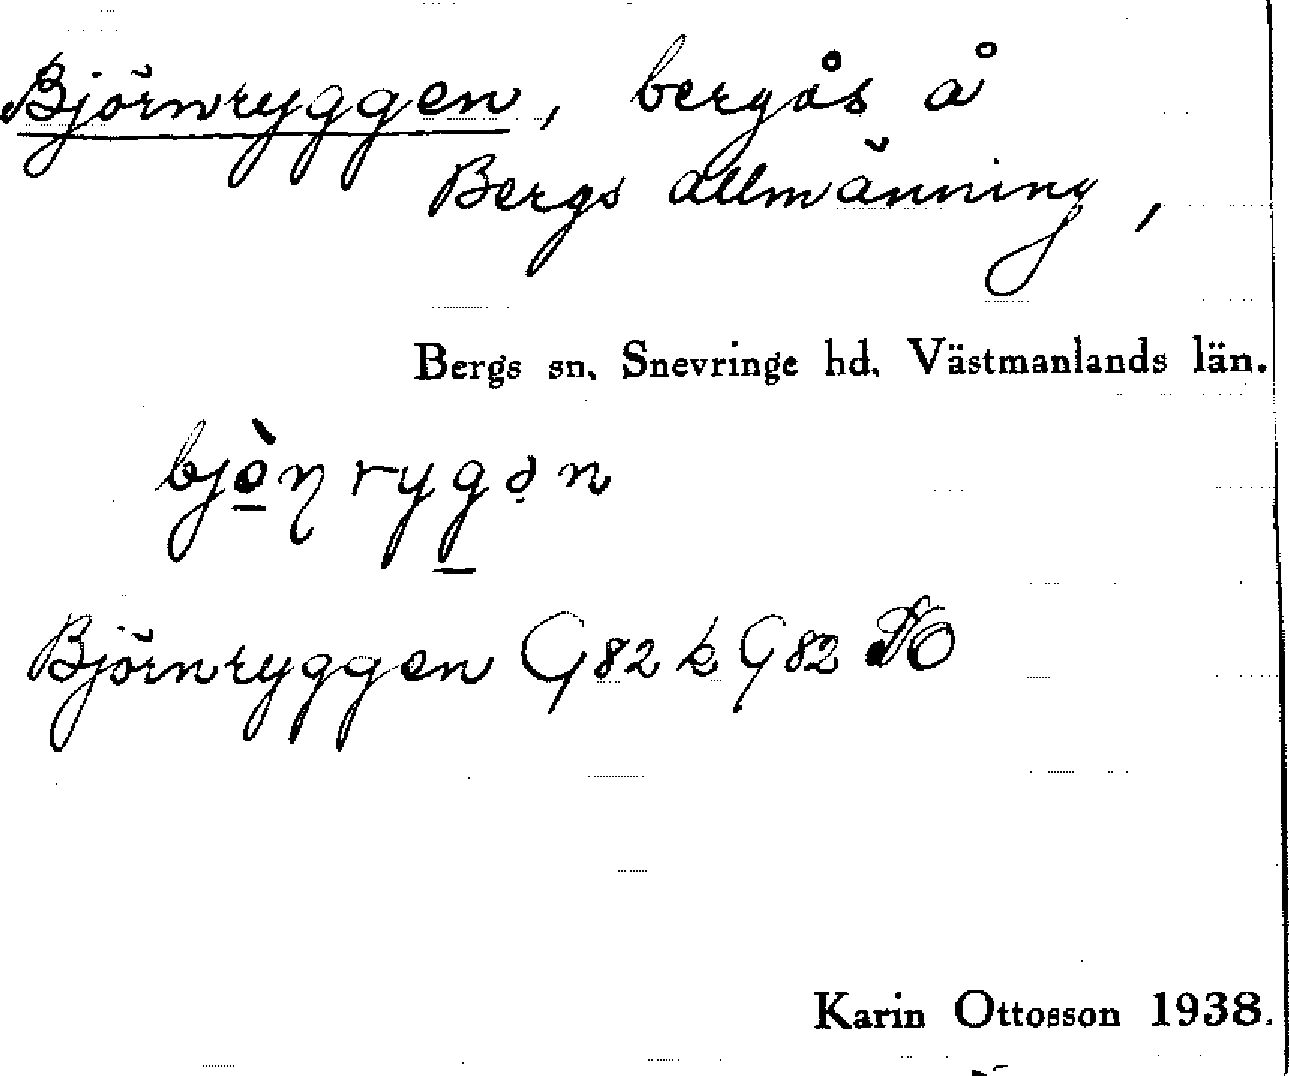 Björnryggen, bergås å
Bergs allmänning,
Bergs sn. Snevringe hd. Västmanlands län.
bjò̱ɳryg̱ən
Björnryggen G 82 k G 82
Karin Ottosson 1938.